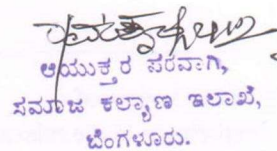 ಆಯುಕ್ತರ ಪರವಾಗಿ,
ಸಮಾಜ ಕಲ್ಯಾಣ ಇಲಾಖೆ,
ಬೆಂಗಳೂರು.